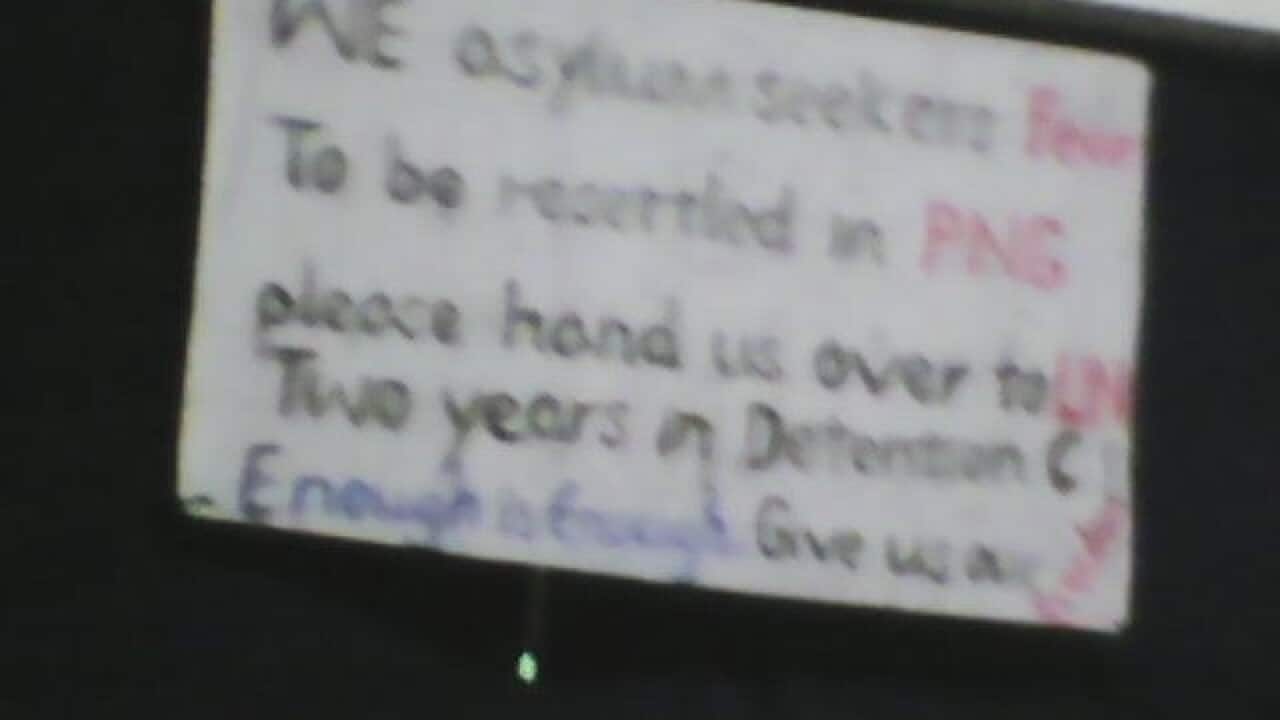 WE asylum seekers Fear
To be resettled in PNG
please hand us over to UN
Two years in Detention C
Enough is Enough Give us a